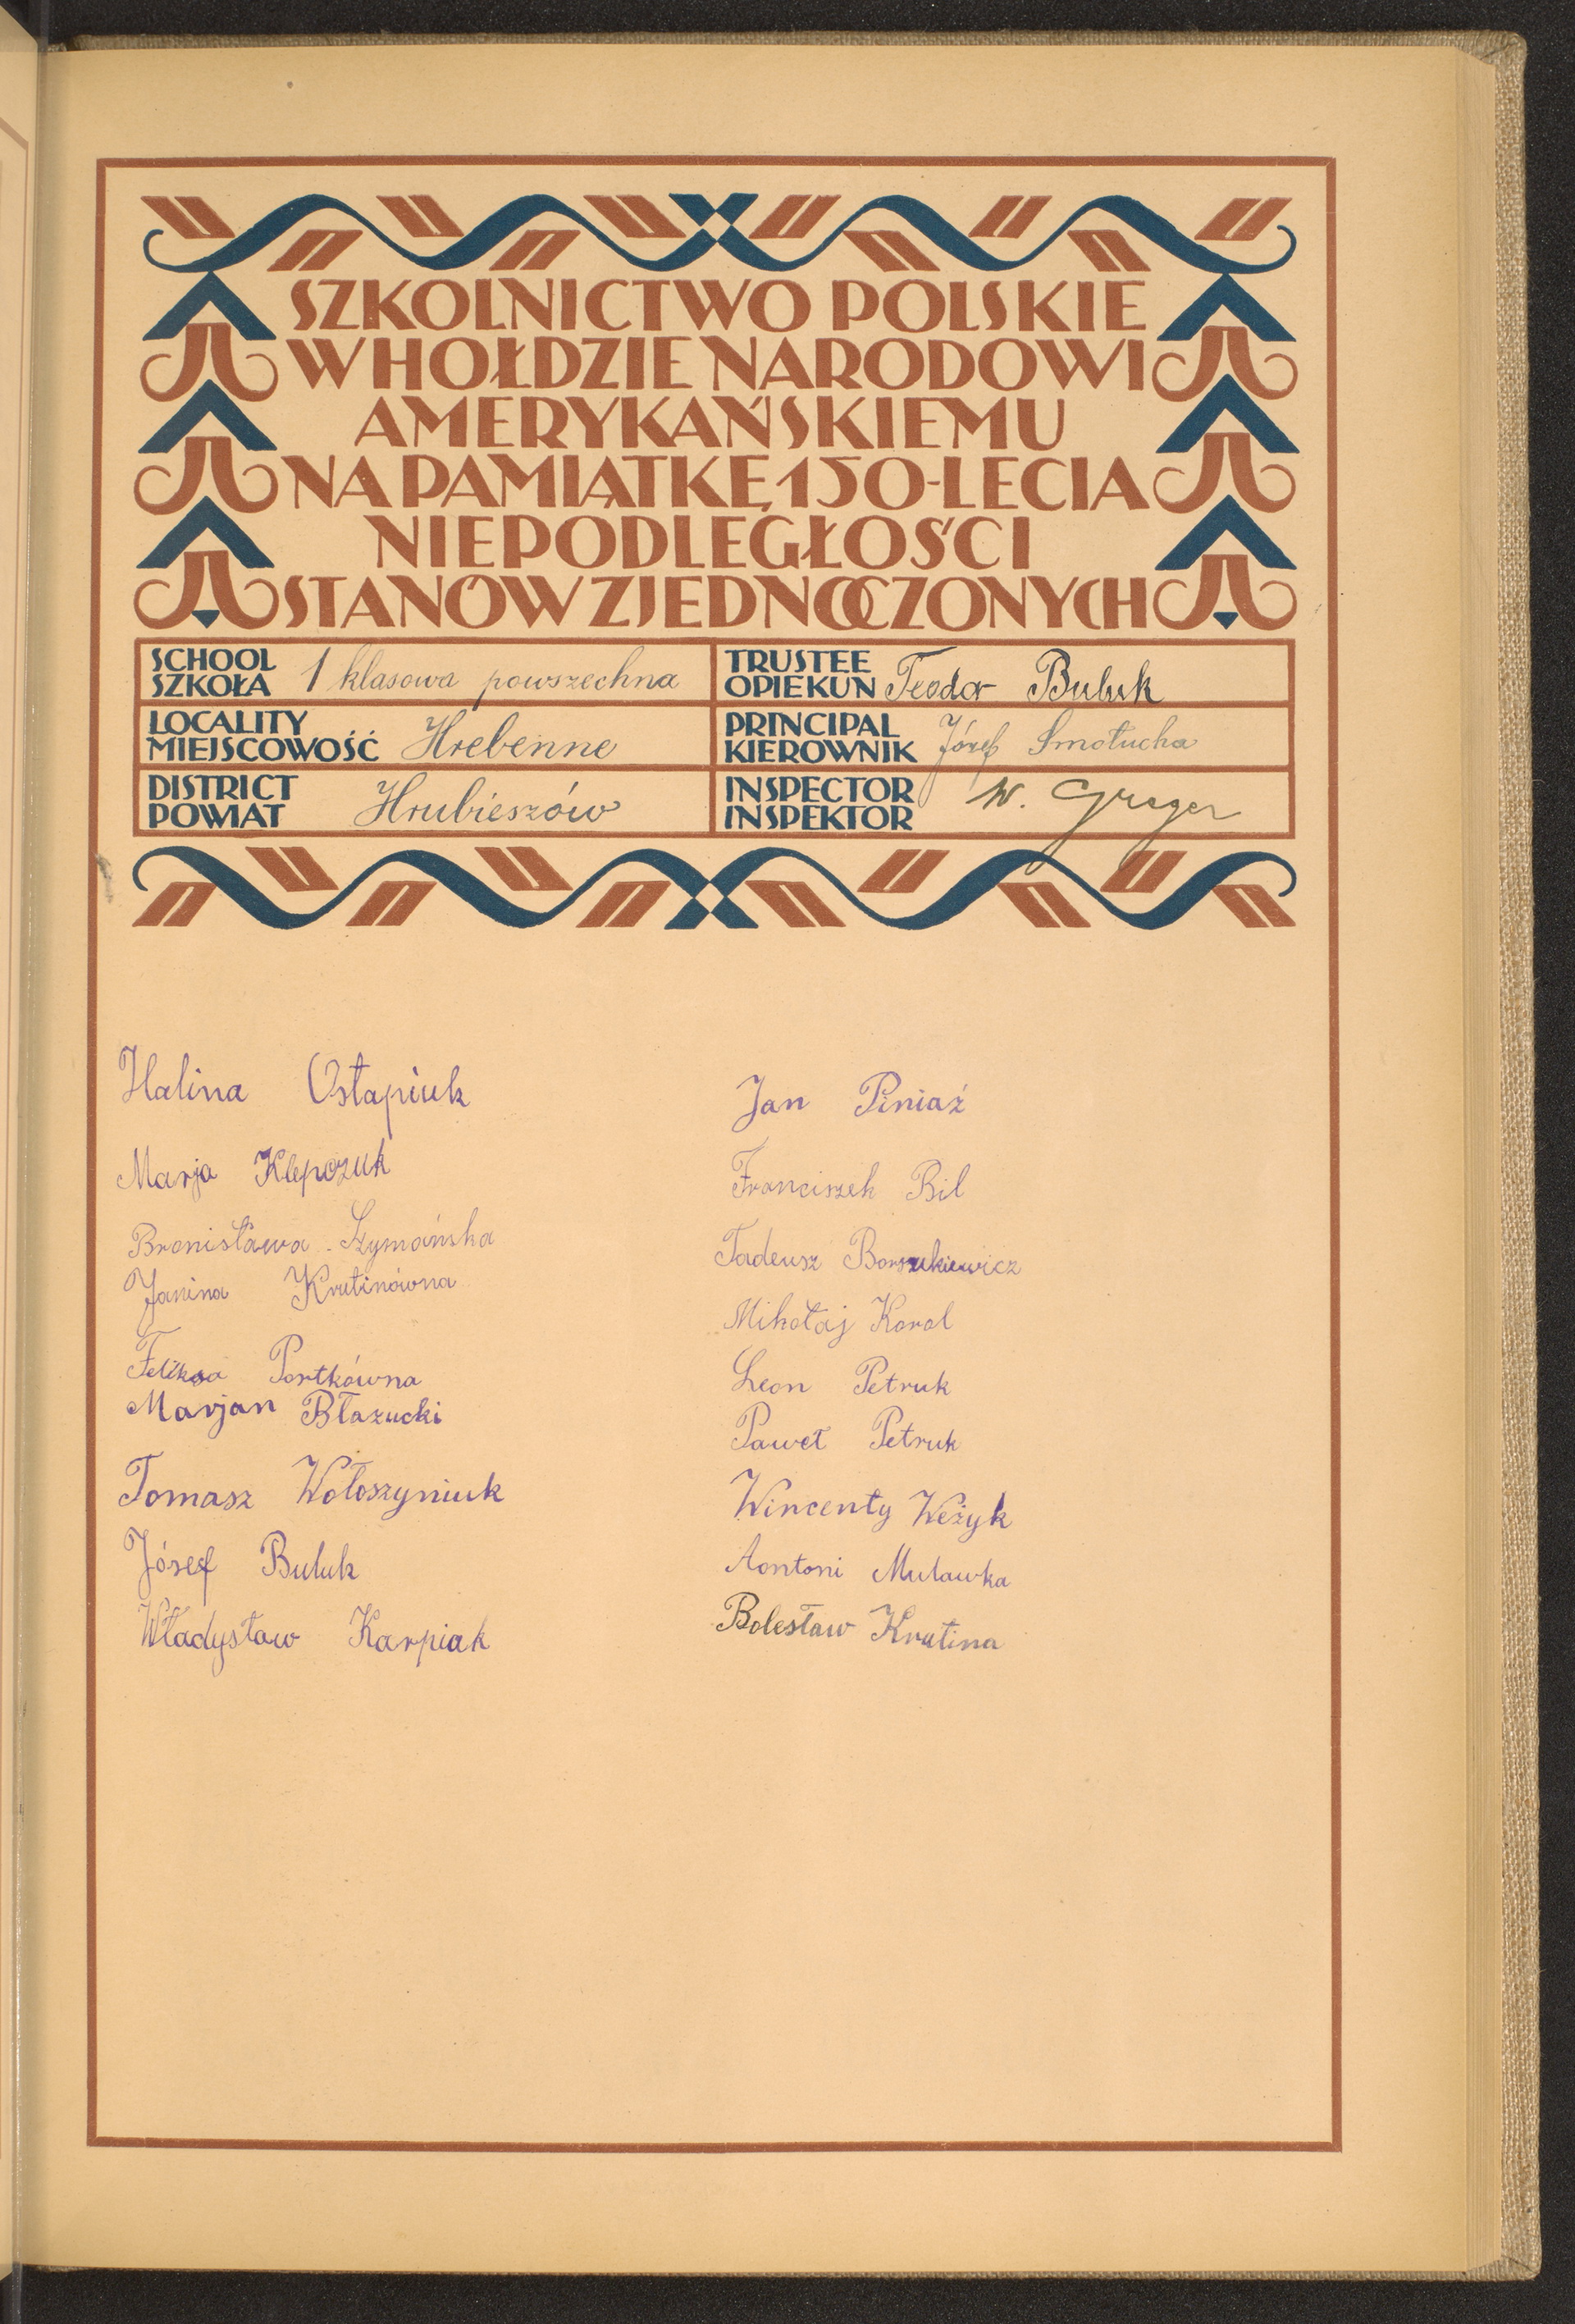 SZKOLNICTWO POLSKIE
W HOŁDZIE NARODOWI
AMERYKAŃSKIEMU
NA PAMIĄTKĘ 150-LECIA
NIEPODLEGŁOŚCI
STANÓW ZJEDNOCZONYCH
SCHOOL
SZKOŁA 1 klasowa powszechna
TRUSTEE
OPIEKUN Teodor Buluk
LOCALITY
MIEJSCOWOŚĆ Hrebenne
PRINCIPAL
KIEROWNIK Józef Smołucha
DISTRICT
POWIAT Hrubieszów
INSPECTOR
INSPEKTOR W. Greger
Halina Ostapiuk
Marja Klepczuk
Bronisława Szymańska
Janina Krutinówna
Feliksa Portkówna
Marjan Błazucki
Tomasz Wołoszyniuk
Józef Buluk
Władysław Karpiak
Jan Piniaź
Franciszek Bil
Tadeusz Borszukiewicz
Mikołaj Korol
Leon Petruk
Paweł Petruk
Wincenty Weżyk
Aontoni Mulawka
Bolesław Krutina